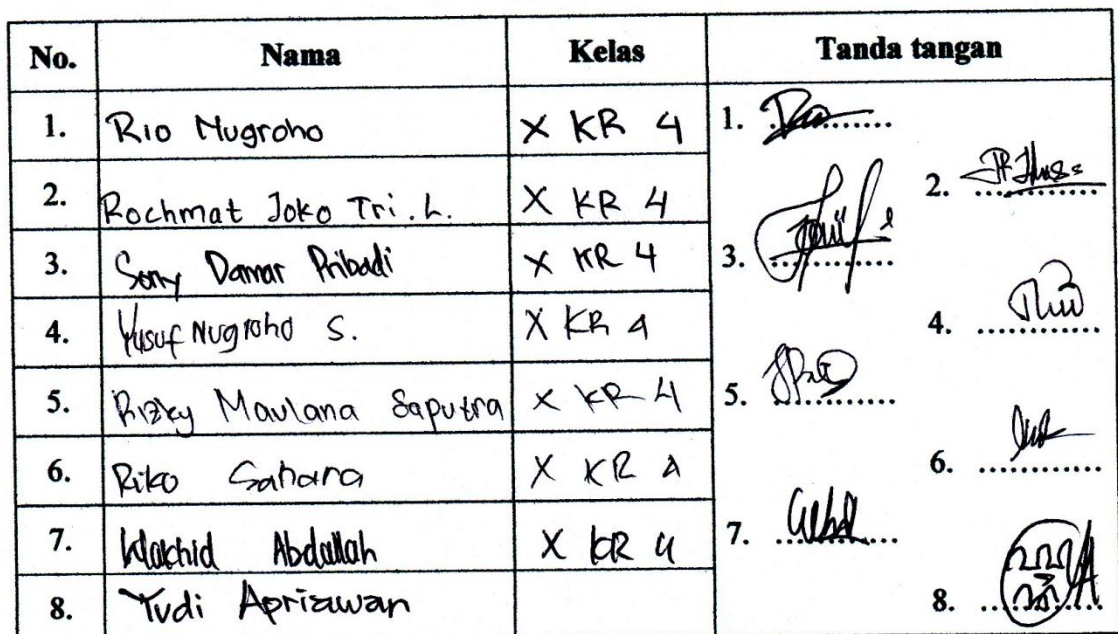 No. Nama Kelas Tanda tangan
1. Rio Nugroho X KR 4 1. ............
2. Rochmat Joko Tri. L. X KR 4 2. ............
3. Sony Damar Pribadi X KR 4 3. ............
4. Yusuf Nugroho S. X KR 4 4. ............
5. Rizky Maulana Saputra X KR 4 5. ............
6. Riko Sahara X KR 4 6. ............
7. Wakhid Abdallah X KR 4 7. ............
8. Yudi Apriawan 8. ............